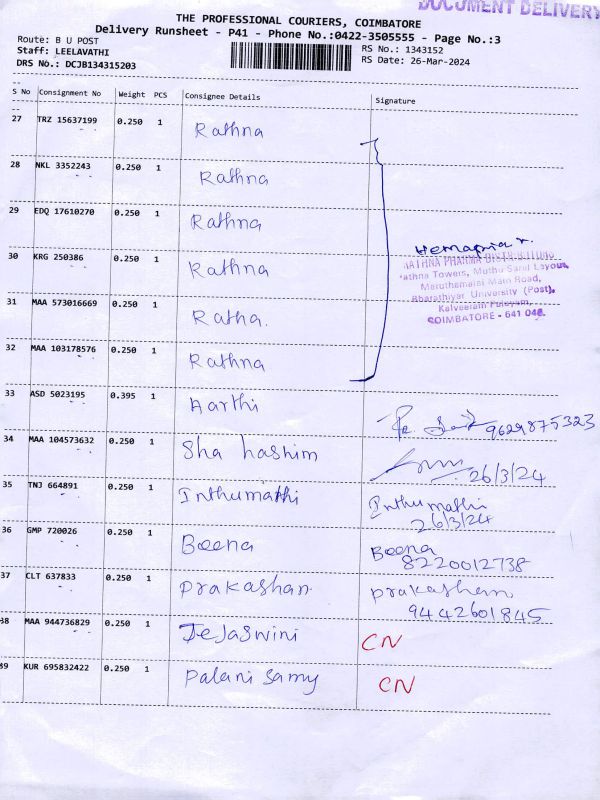 DOCUMENT DELIVERY
THE PROFESSIONAL COURIERS, COIMBATORE
Delivery Runsheet - P41 - Phone No.:0422-3505555 - Page No.:3
Route: B U POST
RS No.: 1343152
Staff: LEELAVATHI
RS Date: 26-Mar-2024
DRS No.: DCJB134315203
S No Consignment No Weight PCS Consignee Details Signature
27 TRZ 15637199 0.250 1 Rathna
28 NKL 3352243 0.250 1 Rathna
29 EDQ 17610270 0.250 1 Rathna
Hemapria r.
RATHNA PHARMA DISTRIBUTORS
Rathna Towers, Muthu Sand Layout,
Maruthamalai Main Road,
Bharathiyar University (Post),
Kalveeram Palayam,
COIMBATORE - 641 046.
30 KRG 250386 0.250 1 Rathna
31 MAA 573016669 0.250 1 Ratha.
32 MAA 103178576 0.250 1 Rathna
33 ASD 5023195 0.395 1 Aarthi
9629875323
34 MAA 104573632 0.250 1 Sha hashim
26/3/24
35 TNJ 664891 0.250 1 Inthumathi Inthumathi
26/3/24
36 GMP 720026 0.250 1 Beena Beena
8220012738
37 CLT 637833 0.250 1 Prakashan. prakashan
9442601845
38 MAA 944736829 0.250 1 Tejaswini CN
39 KUR 695832422 0.250 1 Palani Samy CN